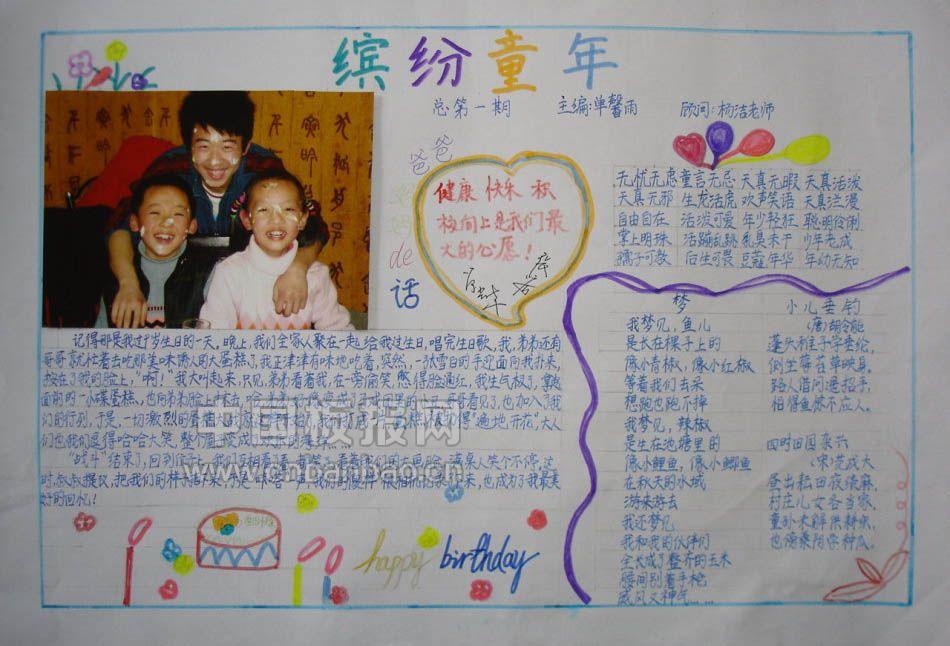 缤纷童年
总第一期 主编:单馨雨 顾问:杨洁老师
爸爸
de
话
健康 快乐 积
极向上是我们最
大的心愿!
无忧无虑 童言无忌 天真无暇 天真活泼
天真无邪 生龙活虎 欢声笑语 天真烂漫
自由自在 活泼可爱 年少轻狂 聪明伶俐
掌上明珠 活蹦乱跳 乳臭未干 少年老成
孺子可教 后生可畏 豆蔻年华 年幼无知
梦
我梦见,鱼儿
是长在棵子上的
像小青椒,像小红椒
等着我们去采
想跑也跑不掉
我梦见,辣椒
是生在池塘里的
像小鲤鱼,像小鲫鱼
在秋天的水城
游来游去
我还梦见
我和我的伙伴们
全长成了整齐的玉米
腰间别着手枪
威风又神气……
小儿垂钓
(唐)胡令能
蓬头稚子学垂纶,
侧坐莓苔草映身。
路人借问遥招手,
怕得鱼惊不应人。
四时田园杂兴
(宋)范成大
昼出耘田夜绩麻,
村庄儿女各当家,
童孙未解供耕织,
也傍桑阴学种瓜。
记得那是我过十岁生日的一天。晚上,我们全家人聚在一起给我过生日,唱完生日歌,我、弟弟还有
哥哥就忙着去吃那美味诱人的大蛋糕了,我正津津有味地吃着,突然,一张雪白的手迎面向我扑来,
按在了我的脸上,"啊!"我大叫起来,只见,弟弟看着我,在一旁偷笑,憋得脸通红,我生气极了,拿起
面前的一小碟蛋糕,也向弟弟脸上抹去,
哥哥看见了,也加入了我
们的行列,于是,一切激烈的蛋糕
"遍地开花",大人
们也我们逗得哈哈大笑,整个屋子变成
"战斗"结束了,回到位子上,我们互相看了看,都笑了,看着我们的大画脸,满桌人笑个不停,这
时,叔叔提议,把我们的样子拍下来,
也成为了我最美
好的回忆!
happy birthday
中国板报网
www.cnbanbao.cn